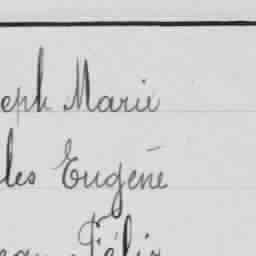 eph Marie
les Eugène
ean Félix